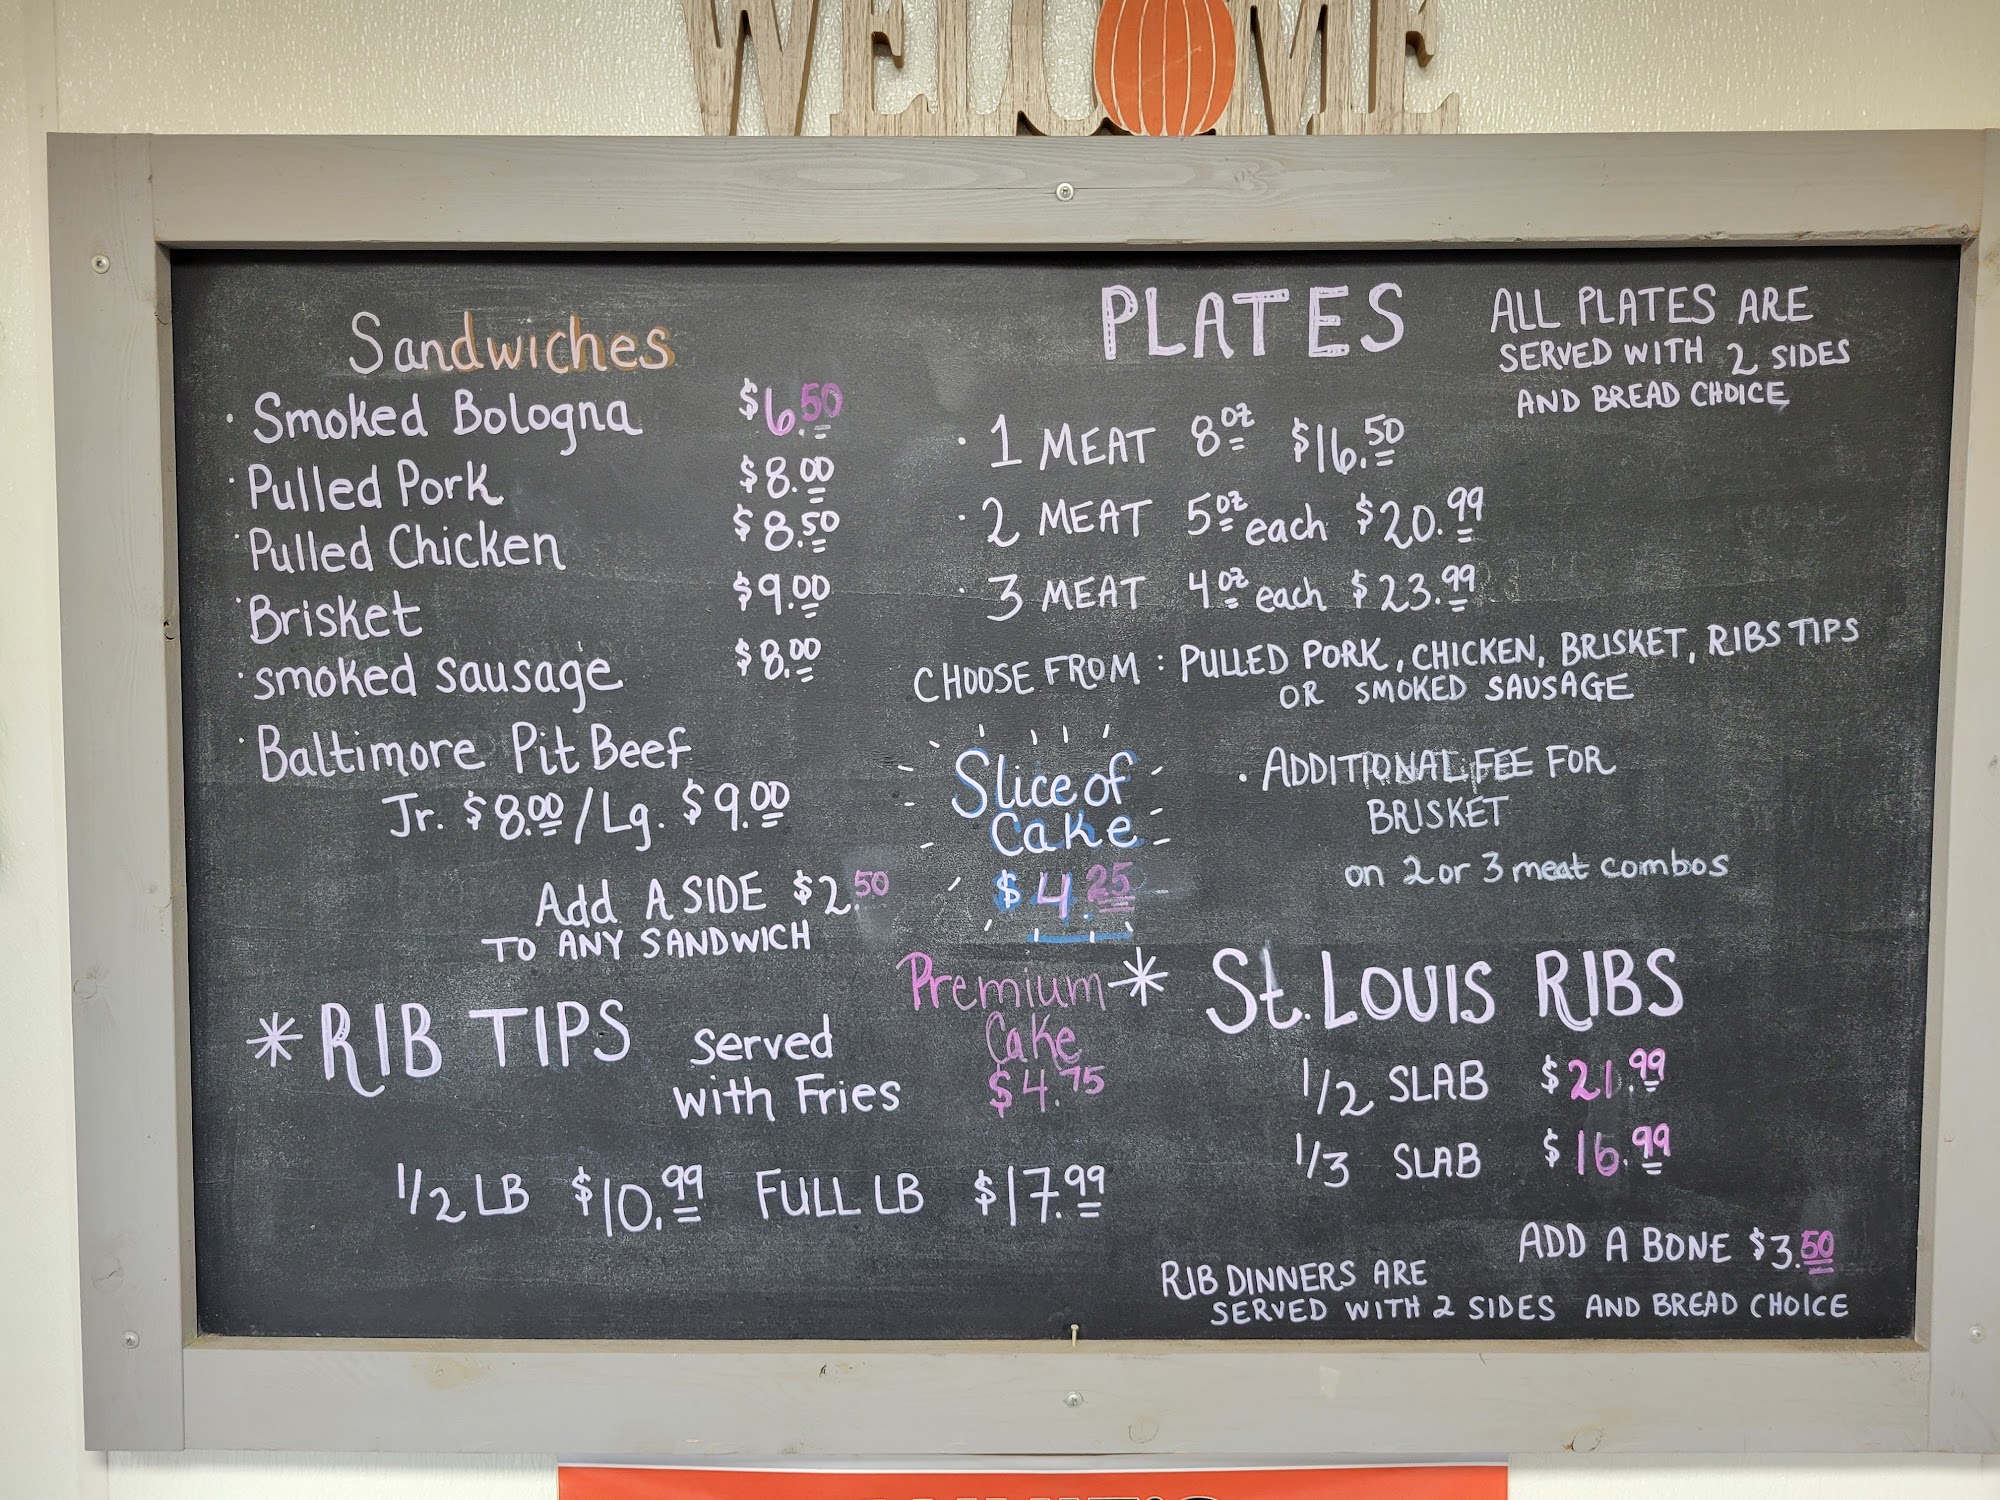 WELCOME
Sandwiches
· Smoked Bologna $6.50
· Pulled Pork $8.00
· Pulled Chicken $8.50
· Brisket $9.00
· smoked sausage $8.00
· Baltimore Pit Beef
Jr. $8.00/Lg. $9.00
Add A SIDE $2.50
TO ANY SANDWICH
* RIB TIPS served
with Fries
1/2 LB $10.99 FULL LB $17.99
Slice of
Cake
$4.25
Premium
Cake
$4.75
PLATES
ALL PLATES ARE
SERVED WITH 2 SIDES
AND BREAD CHOICE
· 1 MEAT 8oz $16.50
· 2 MEAT 5oz each $20.99
· 3 MEAT 4oz each $23.99
CHOOSE FROM: PULLED PORK, CHICKEN, BRISKET, RIBS TIPS
OR SMOKED SAUSAGE
· ADDITIONAL FEE FOR
BRISKET
on 2 or 3 meat combos
* St. LOUIS RIBS
1/2 SLAB $21.99
1/3 SLAB $16.99
ADD A BONE $3.50
RIB DINNERS ARE
SERVED WITH 2 SIDES AND BREAD CHOICE